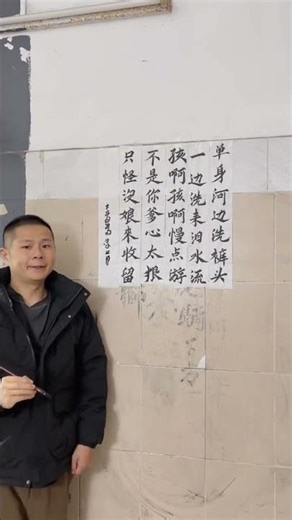 单身河边洗裤头
一边洗来泪水流
孩啊孩啊慢点游
不是你爹心太狠
只怪没娘来收留